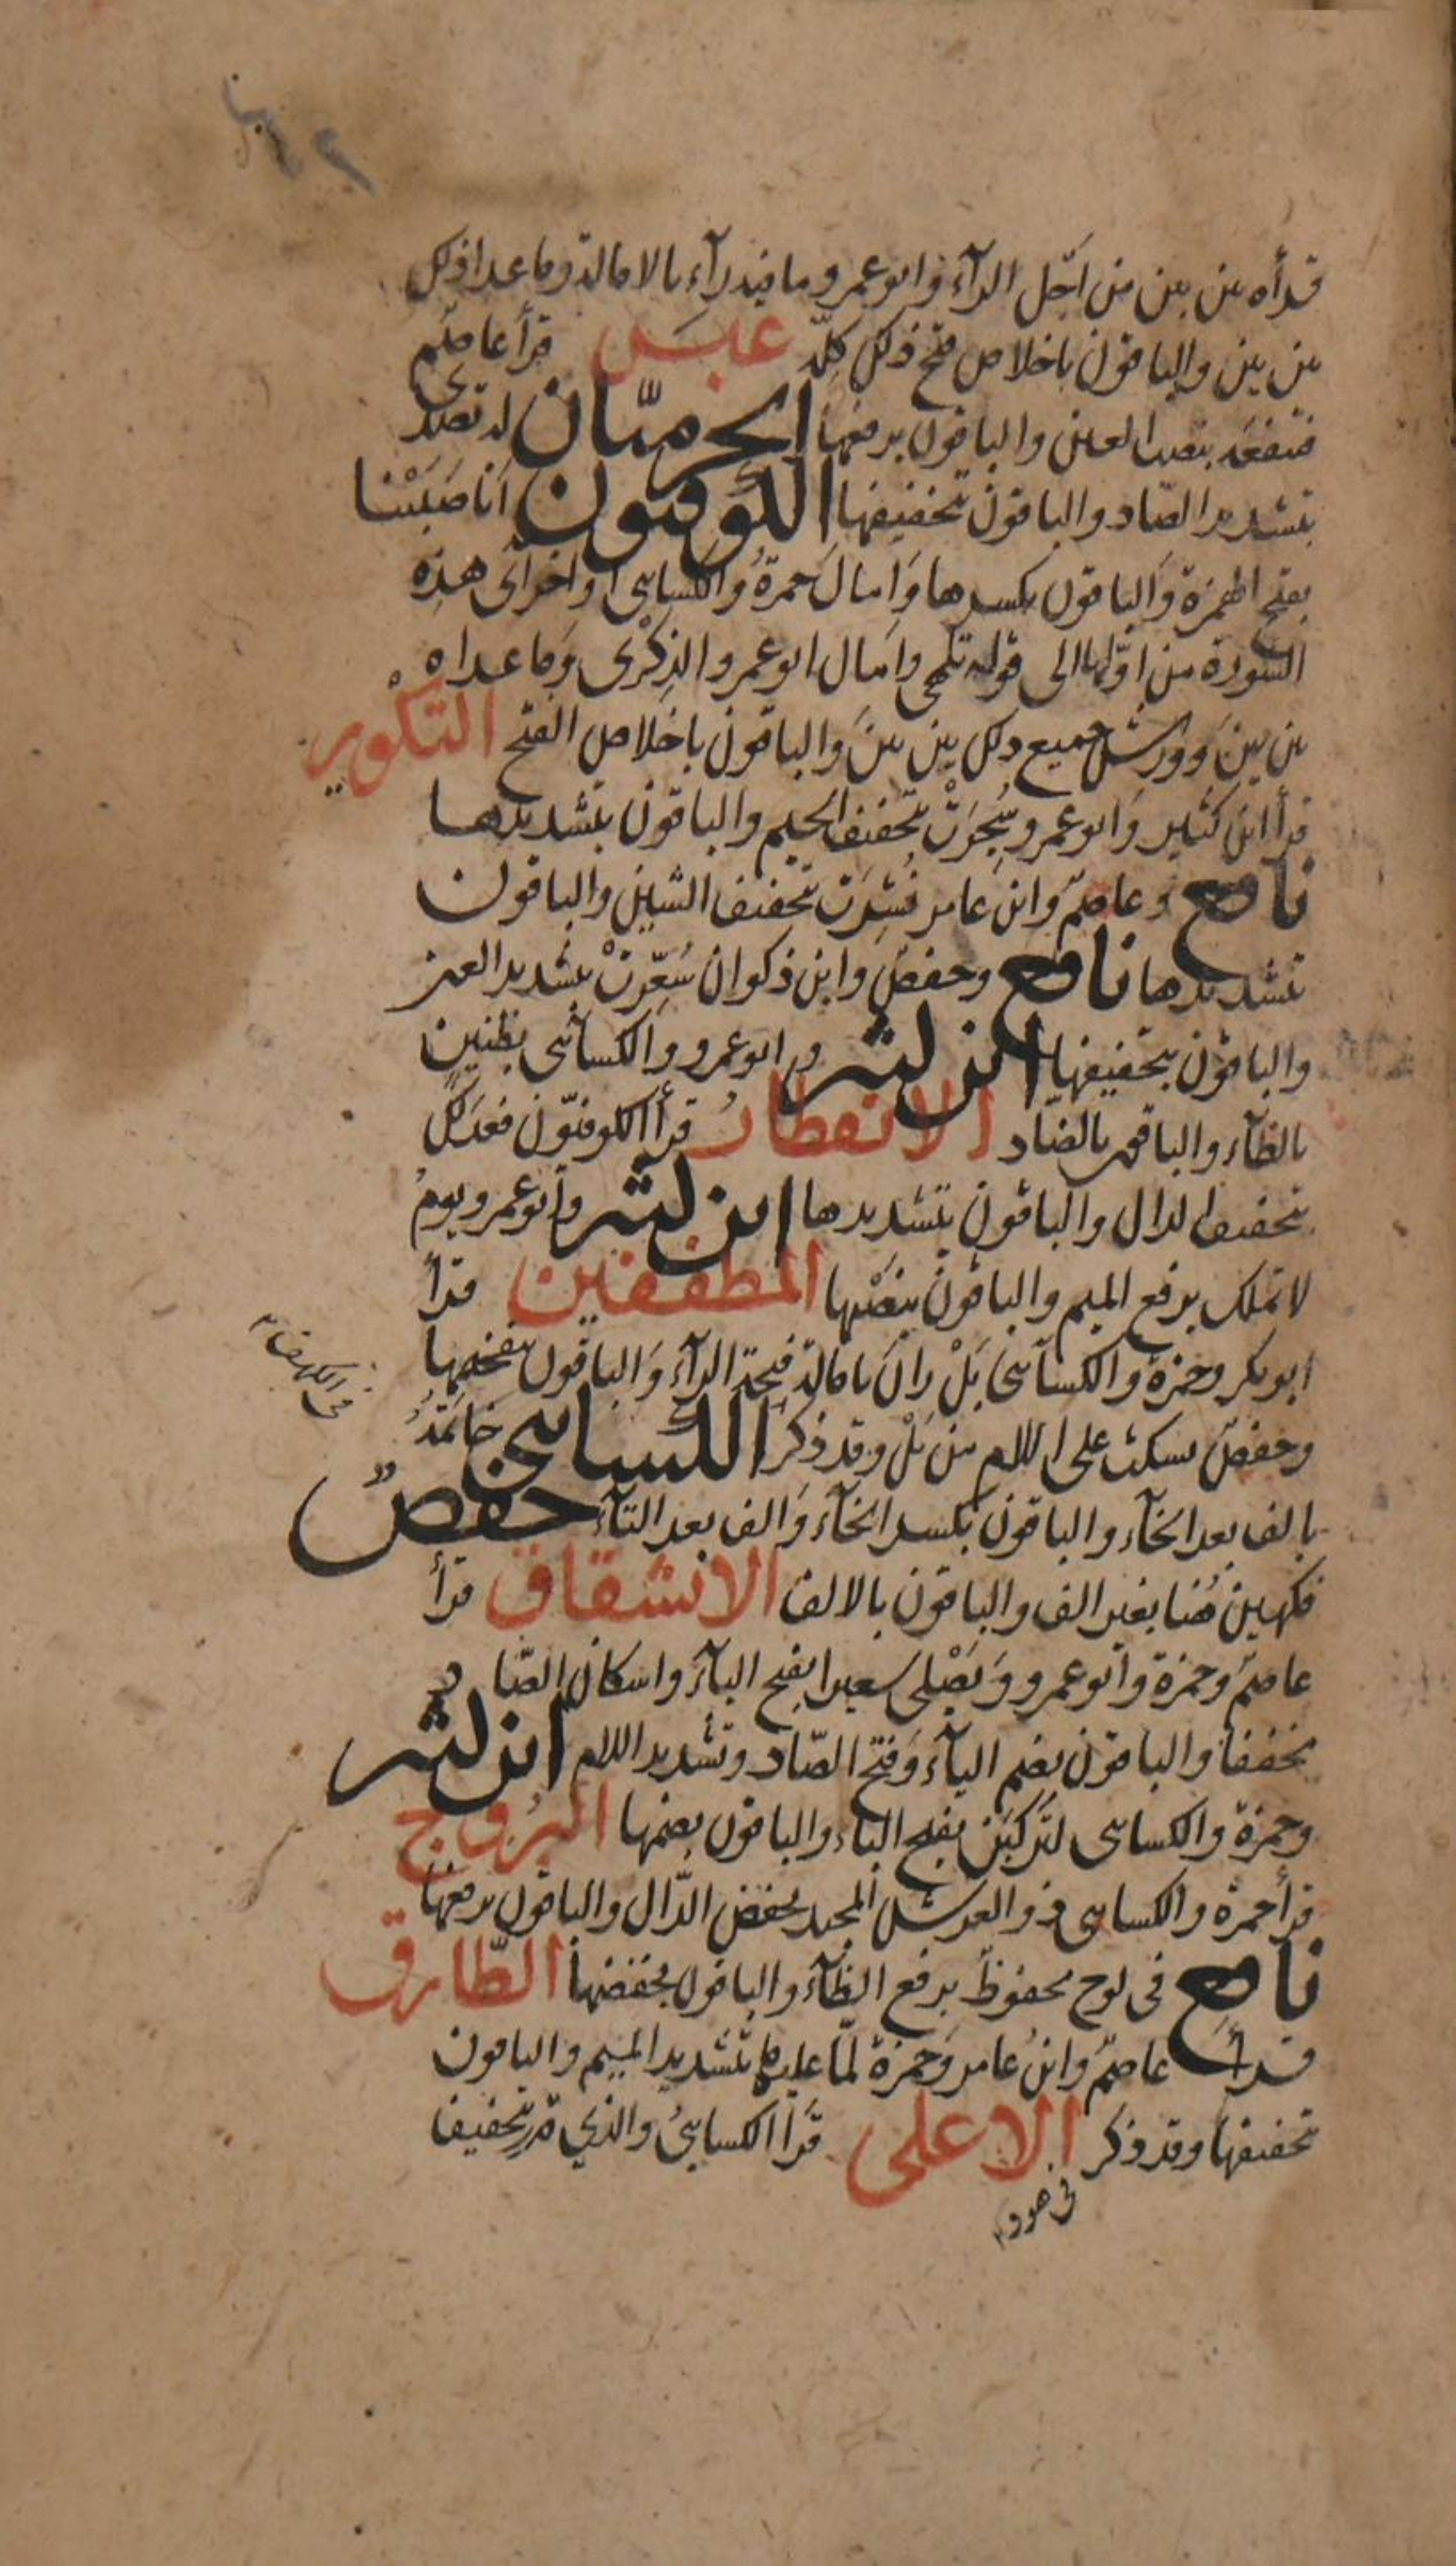 قرأه بين بين من اجل الرآء وابو عمرو ما فيه رآء بالامالة وما عدا ذلك
بين بين والباقون باخلاص فتح ذلك كلّه عبَسَ قرأ عاصم
فتنفعَه بنصب العين والباقون برفعها الحرميّان له تصدى
بتشديد الصّاد والباقون بتخفيفها الكوفيون اَنا صَبَبْنا
بفتح الهمزة وَالباقون بكسرها وَامال حمزةُ والكسايى اواخر اى هذه
السّورة من اوّلها الى قوله تلهى وامال ابو عمرو الذِكْرى وَما عداه
بين بينَ وورش جميع ذلك بين بينَ والباقون باخلاص الفتح التكْوير
قرأ ابن كثير وَابو عمرو سُجِرَتْ بتخفيف الجيم والباقون بتشديدها
نافع وعاصمٌ وابن عامر نُشِرَت بتخفيف الشين والباقون
بتشديدها نافع وحفص وابن ذكوان سُعِّرتْ بتشديد العين
والباقون بتخفيفها ابن كثير وابو عمرو والكسآئى بظنينٍ
بالظآء والباقون بالضّاد الانفطارُ قرأ الكوفيّون فعَدَلكَ
بتخفيف الدال والباقون بتشديدها ابن كثير وابو عمرو يومُ
لا تملك برفع الميم والباقون بنصْبها المطففين قرأ
ابو بكر وحمزة والكسآئى بَلْ رانَ بامالة فتحة الرآء وَالباقون بفتحها
فى الكهف
وحفصٌ يسكت على اللام من بَلْ وقد ذكر الكسائى خاتمَهُ
بالف بعد الخآء والباقون بكسر الخآء وَالف بعد التآء حفصٌ
فكهين هُنا بغير الف والباقون بالالف الانشقاق قرأ
عاصمٌ وحمزة وابو عمرو وَيَصْلى سعيرا بفتح اليآء واسكان الصّاد
مخففا والباقون بضم اليآء وَفتح الصّاد وتشديد اللام ابن كثير
وحمزة والكسائى لتركبَن بفتح الباء والباقون بضمها البُروج
قرأ حمزة والكسائى ذو العرش المجيد بخفض الدّال والباقون برفعها
نافع فى لوح محفوظٌ برفع الظآء والباقون بخفضها الطّارق
قرأ عاصمٌ وابنُ عامر وَحمزة لمّا عليها بتشديد الميم والباقون
بتخفيفها وقد ذكر الاعلى قَرأ الكسايىُ والذي قدر بتخفيف
فى هود